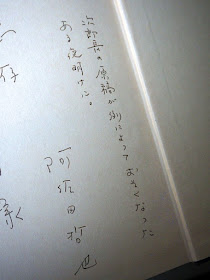 次郎長の原稿が例によっておそくなった
ある夜明けに。
阿佐田哲也